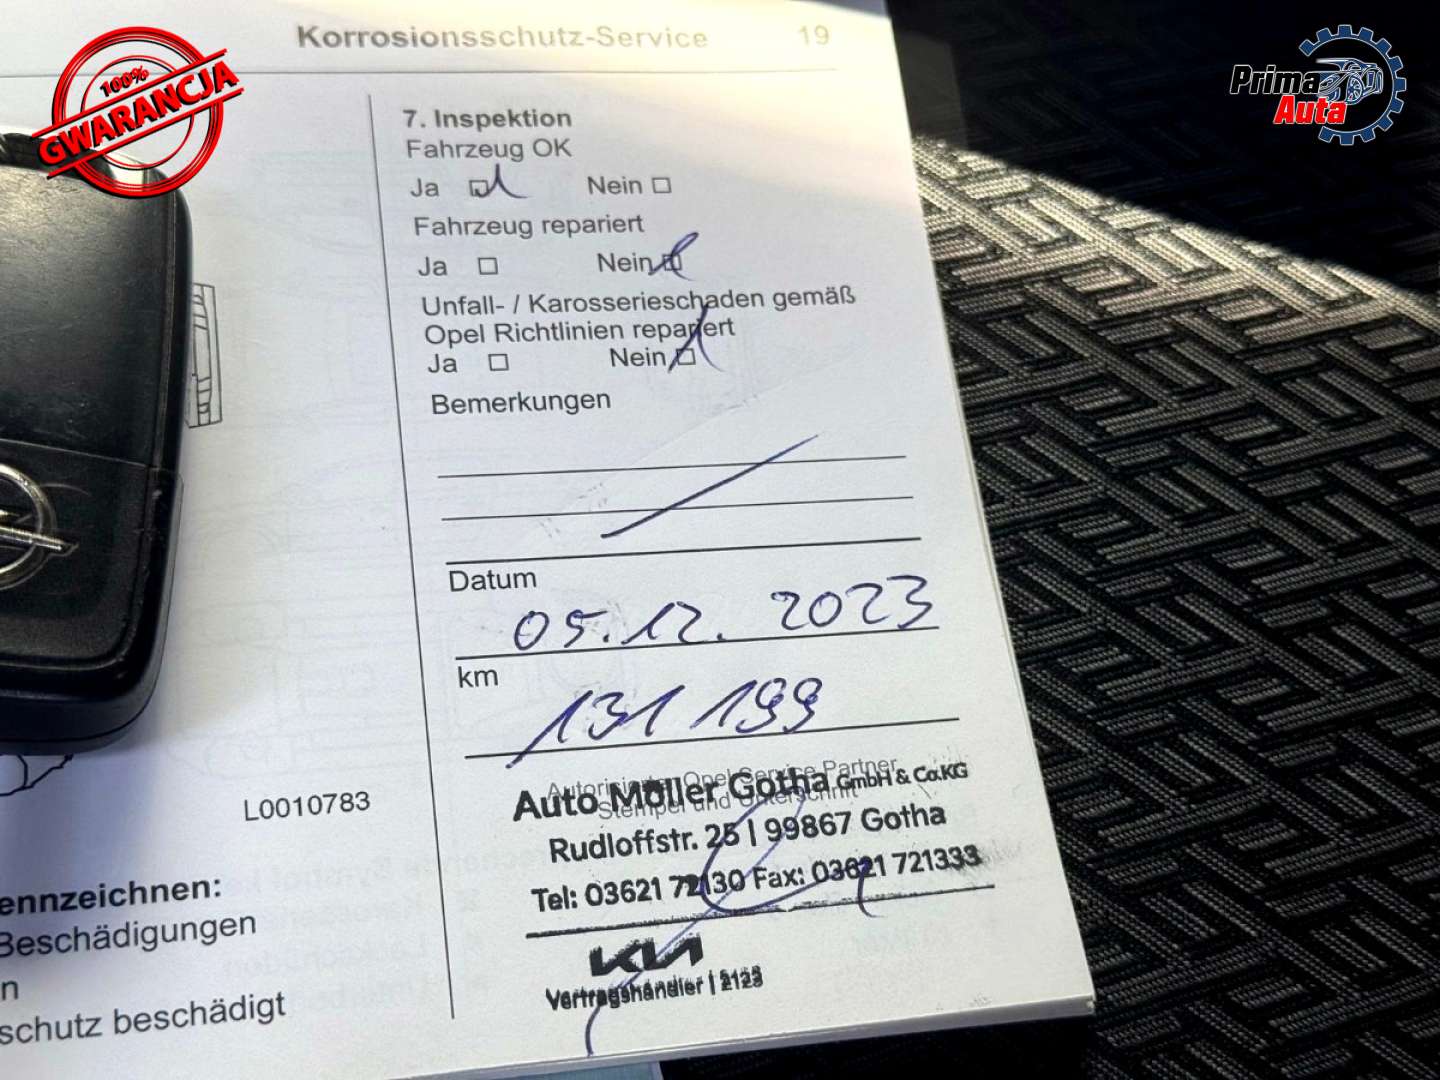 Korrosionsschutz-Service 19
100%
GWARANCJA
Prima
Auta
7. Inspektion
Fahrzeug OK
Ja Nein
Fahrzeug repariert
Ja Nein
Unfall- / Karosserieschaden gemäß
Opel Richtlinien repariert
Ja Nein
Bemerkungen
Datum
05.12.2023
km
131 199
Autorisierter Opel Service Partner
Stempel und Unterschrift
Auto Möller Gotha GmbH & Co.KG
Rudloffstr. 25 | 99867 Gotha
Tel: 03621 72130 Fax: 03621 721333
KIA
Vertragshändler | 2123
L0010783
ennzeichnen:
Beschädigungen
n
schutz beschädigt